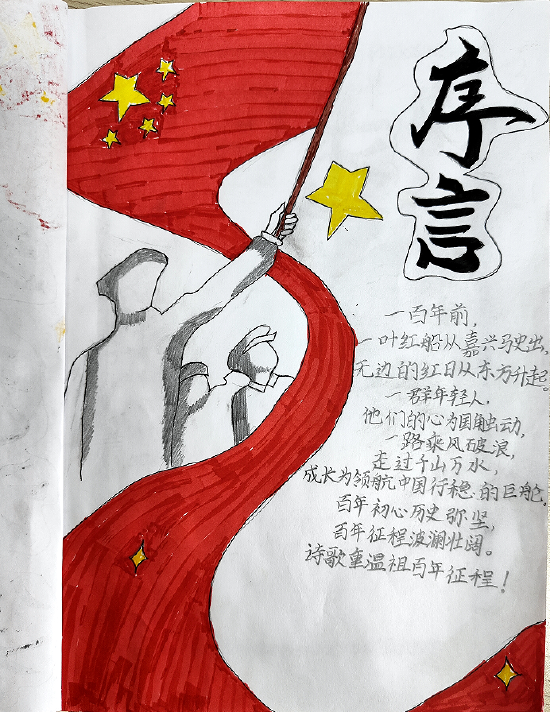 序言
一百年前,
一叶红船从嘉兴马史出,
无边的红日从东方升起。
一群年轻人,
他们的心为国触动,
一路乘风破浪,
走过千山万水,
成长为领航中国行稳的巨舱。
百年初心历史弥坚,
百年征程波澜壮阔。
诗歌重温祖百年征程!